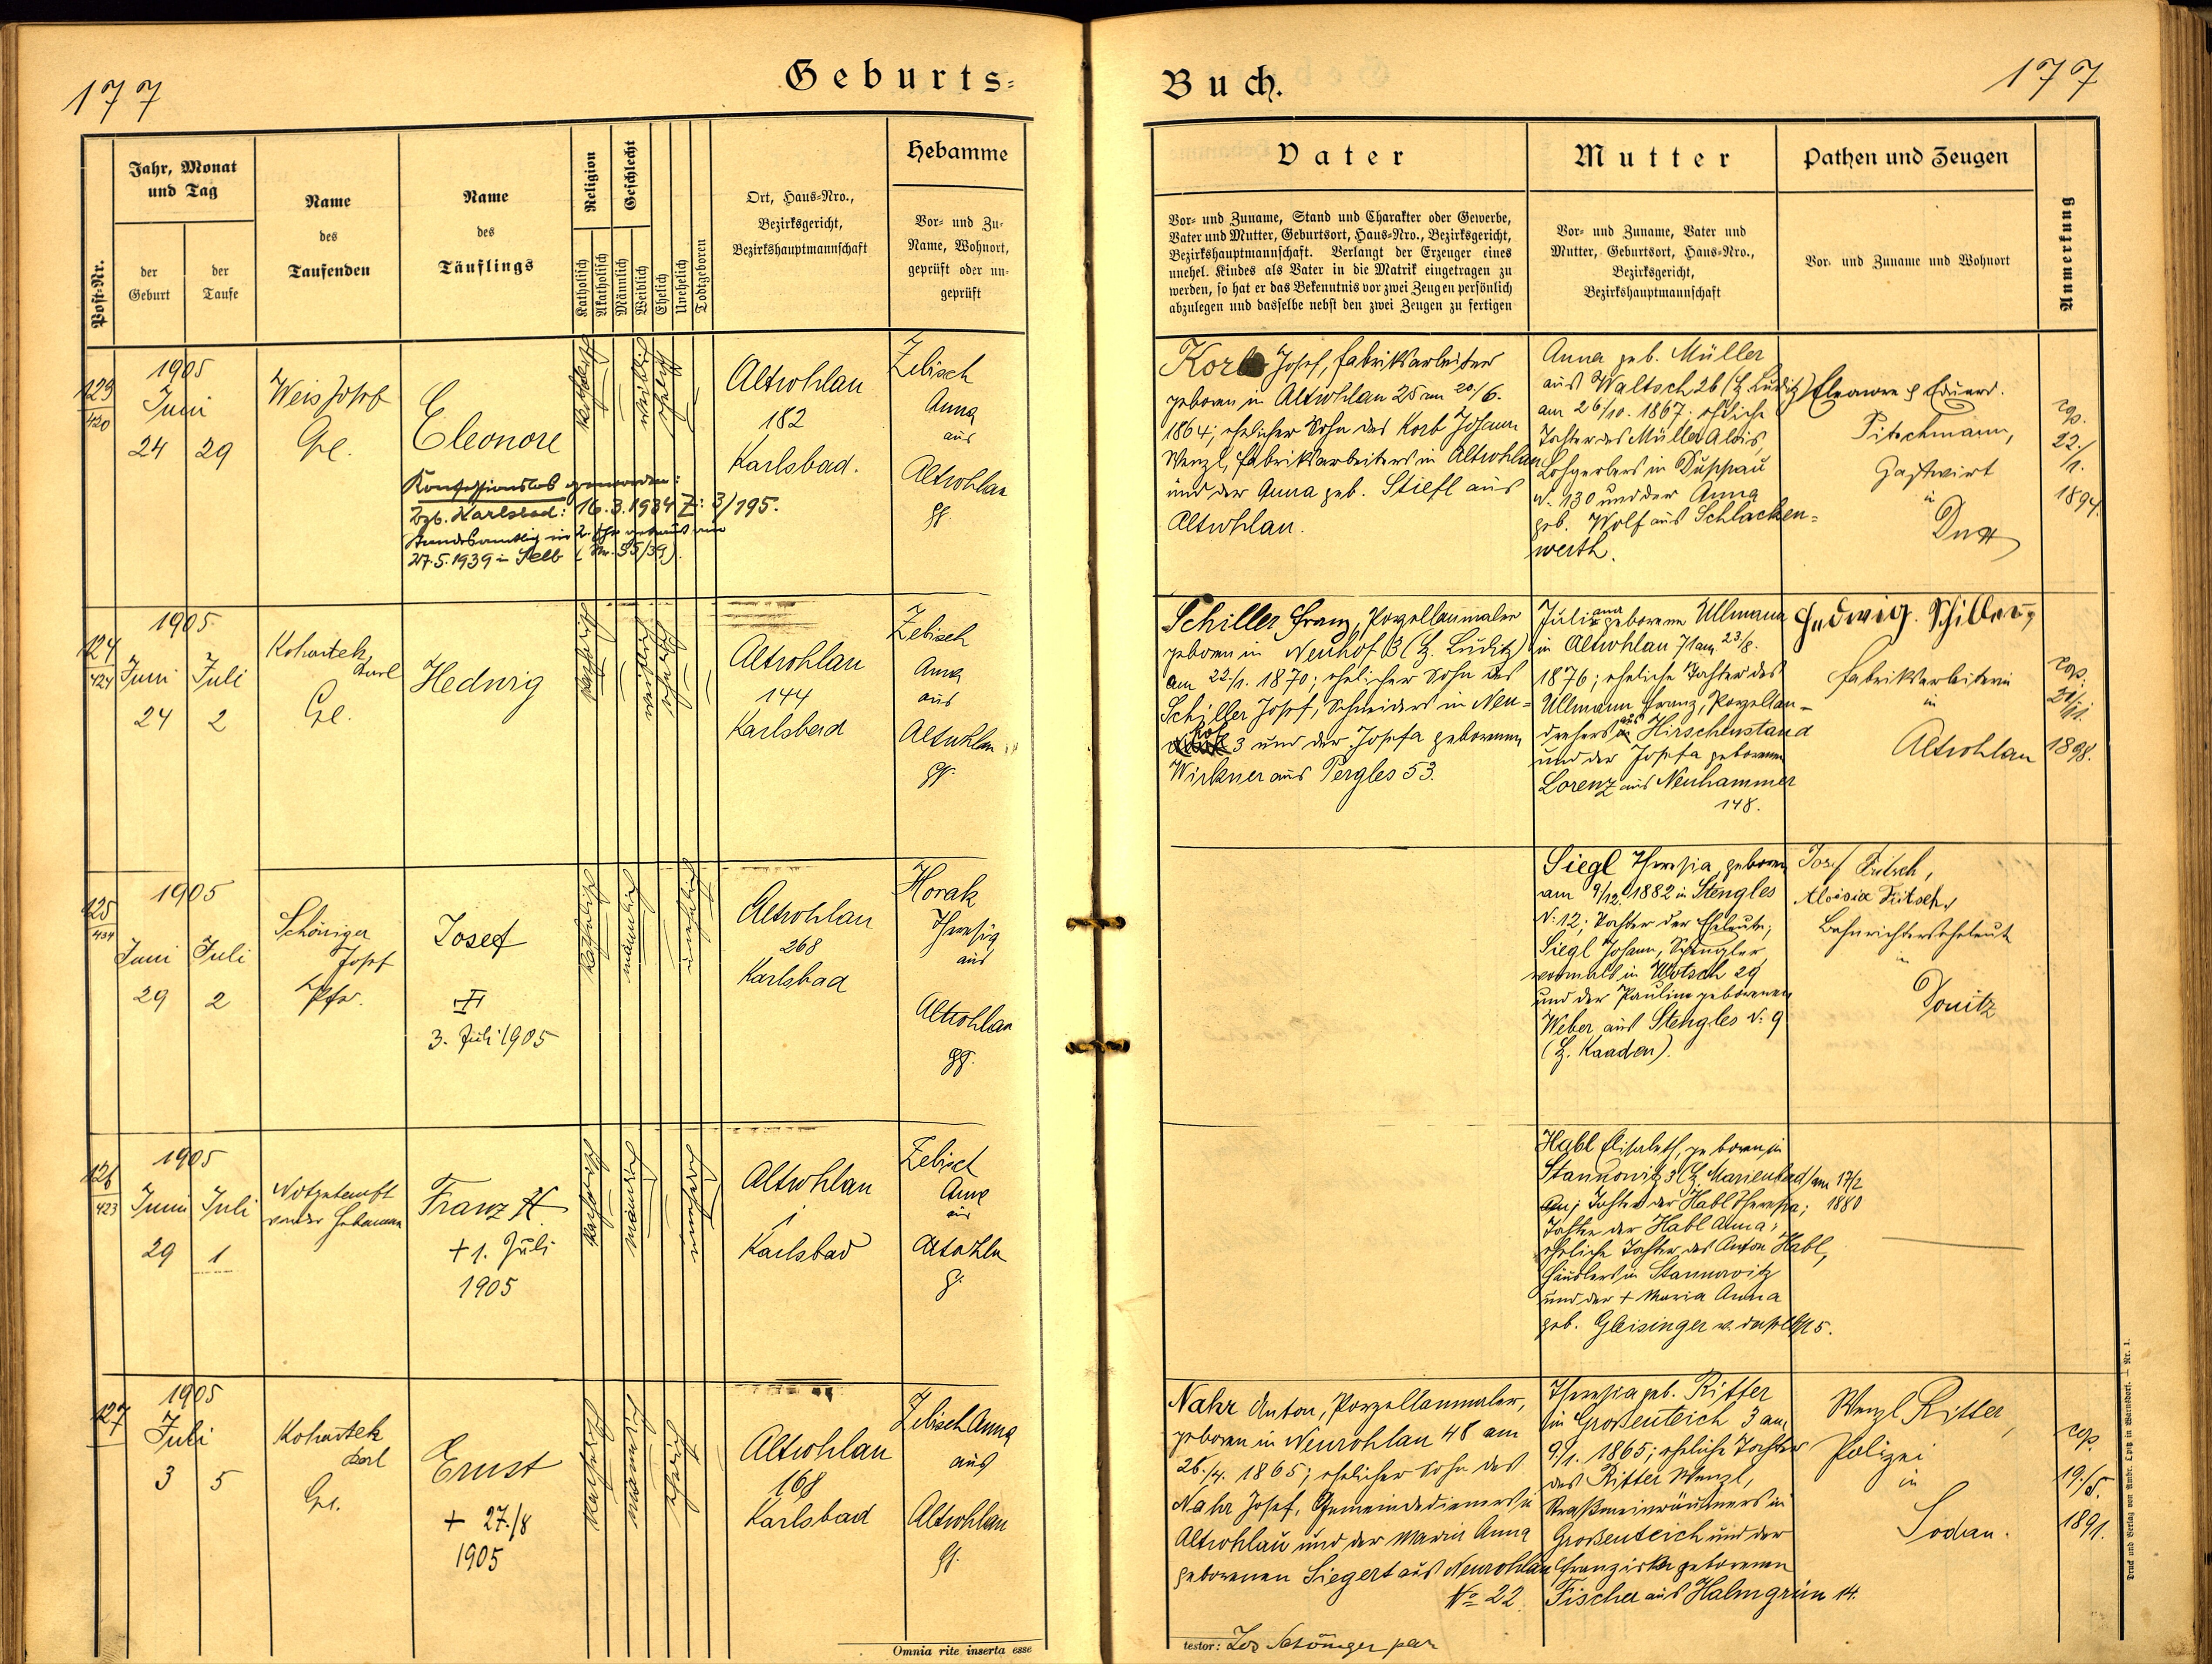 177
Geburts=
Post-Nr.
Jahr, Monat
und Tag
der
Geburt
der
Taufe
Name
des
Taufenden
Name
des
Täuflings
Religion
Katholisch
Akatholisch
Geschlecht
Männlich
Weiblich
Ehelich
Unehelich
Todtgeboren
Ort, Haus-Nro.,
Bezirksgericht,
Bezirkshauptmannschaft
Hebamme
Vor- und Zu-
Name, Wohnort,
geprüft oder un-
geprüft
123
420
1905
Juni
24
29
Weis Josef
Eleonore
Konfessionslos geworden:
Bzb. Karlsbad: 16.3.1934 Z: 3/195.
Standesamtlich in 2. Ehe getraut am
27.5.1939 in Selb (Nr. 35/39).
katholisch
weiblich
ehelich
Altrohlau
182
Karlsbad.
Zebisch
Anna
aus
Altrohlau
124
424
1905
Juni
24
Juli
2
Kohautek
Karl
Hedwig
katholisch
weiblich
ehelich
Altrohlau
144
Karlsbad
Zebisch
Anna
aus
Altrohlau
125
434
1905
Juni
29
Juli
2
Schöniger
Josef
Pfr.
Josef
3. Juli 1905
katholisch
männlich
unehelich
Altrohlau
268
Karlsbad
Horak
Theresia
aus
Altrohlau
126
423
1905
Juni
29
Juli
1
Notgetauft
von der Hebamme
Franz
+ 1. Juli
1905
katholisch
männlich
unehelich
Altrohlau
Karlsbad
Zebisch
Anna
aus
Altrohlau
127
1905
Juli
3
5
Kohautek
Karl
Ernst
+ 27./8
1905
katholisch
männlich
ehelich
Altrohlau
168
Karlsbad
Zebisch Anna
aus
Altrohlau
Omnia rite inserta esse
Buch.
177
Vater
Vor- und Zuname, Stand und Charakter oder Gewerbe,
Vater und Mutter, Geburtsort, Haus-Nro., Bezirksgericht,
Bezirkshauptmannschaft. Verlangt der Erzeuger eines
unehel. Kindes als Vater in die Matrik eingetragen zu
werden, so hat er das Bekenntnis vor zwei Zeugen persönlich
abzulegen und dasselbe nebst den zwei Zeugen zu fertigen
Mutter
Vor- und Zuname, Vater und
Mutter, Geburtsort, Haus-Nro.,
Bezirksgericht,
Bezirkshauptmannschaft
Pathen und Zeugen
Vor- und Zuname und Wohnort
Anmerkung
Korb Josef, Fabriksarbeiter
geboren in Altrohlau 25 am 20/6.
1864; ehelicher Sohn des Korb Johann
Wenzl, Fabriksarbeiters in Altrohlau
und der Anna geb. Stiefl aus
Altrohlau.
Anna geb. Müller
aus Waltsch 26 (B. Luditz)
am 26/10. 1867; eheliche
Tochter des Müller Alois,
Lohgerbers in Duppau
N. 130 und der Anna
geb. Wolf aus Schlacken=
werth.
Eleonore & Eduard
Pitschmann,
Gastwirt
in
Dux
cop.
22./
1.
1894.
Schiller Franz, Porzellanmaler
geboren in Neuhof 3 (B. Luditz)
am 22/1. 1870; ehelicher Sohn des
Schiller Josef, Schneiders in Neu=
hof 3 und der Josefa geborenen
Wirkner aus Pergles 53.
Juliana geborene Ullmann
in Altrohlau 71 am 23/8.
1876; eheliche Tochter des
Ullmann Franz, Porzellan-
drehers aus Hirschenstand
und der Josefa geborenen
Lorenz aus Neuhammer
148.
Hedwig Schiller,
Fabriksarbeiterin
in
Altrohlau
cop.
21/11.
1898.
Siegl Theresia, geboren
am 9/12. 1882 in Stengles
N. 12; Tochter der Eheleute,
Siegl Johann, Spengler
vormals in Wotsch 29
und der Paulina geborenen
Weber aus Stengles N. 9
(B. Kaaden).
Josef Fritsch,
Aloisia Fritsch,
Bahnrichterseheleute
in
Donitz
Habl Elisabeth, geboren in
Stannowitz 3 (B. Marienbad) am 17/2
1880
Tochter der Habl Theresia;
Tochter der Habl Anna;
eheliche Tochter des Anton Habl,
Häuslers in Stannowitz
und der + Maria Anna
geb. Gleisinger v. daselbst 5.
Nahr Anton, Porzellanmaler,
geboren in Neurohlau 48 am
26./4. 1865; ehelicher Sohn des
Nahr Josef, Gemeindedieners in
Altrohlau und der Maria Anna
geborenen Siegert aus Neurohlau
No 22.
Theresia geb. Ritter
in Großenteich 3 am
9/1. 1865; eheliche Tochter
des Ritter Wenzl,
Straßeneinräumers in
Großenteich und der
Franziska geborenen
Fischer aus Halmgrün 14.
Wenzl Ritter,
Polizei
in
Sodau.
cop.
19./5.
1891.
testor: Jos Schöniger par
Druck und Verlag von Ambr. Opitz in Warnsdorf. — Nr. 1.